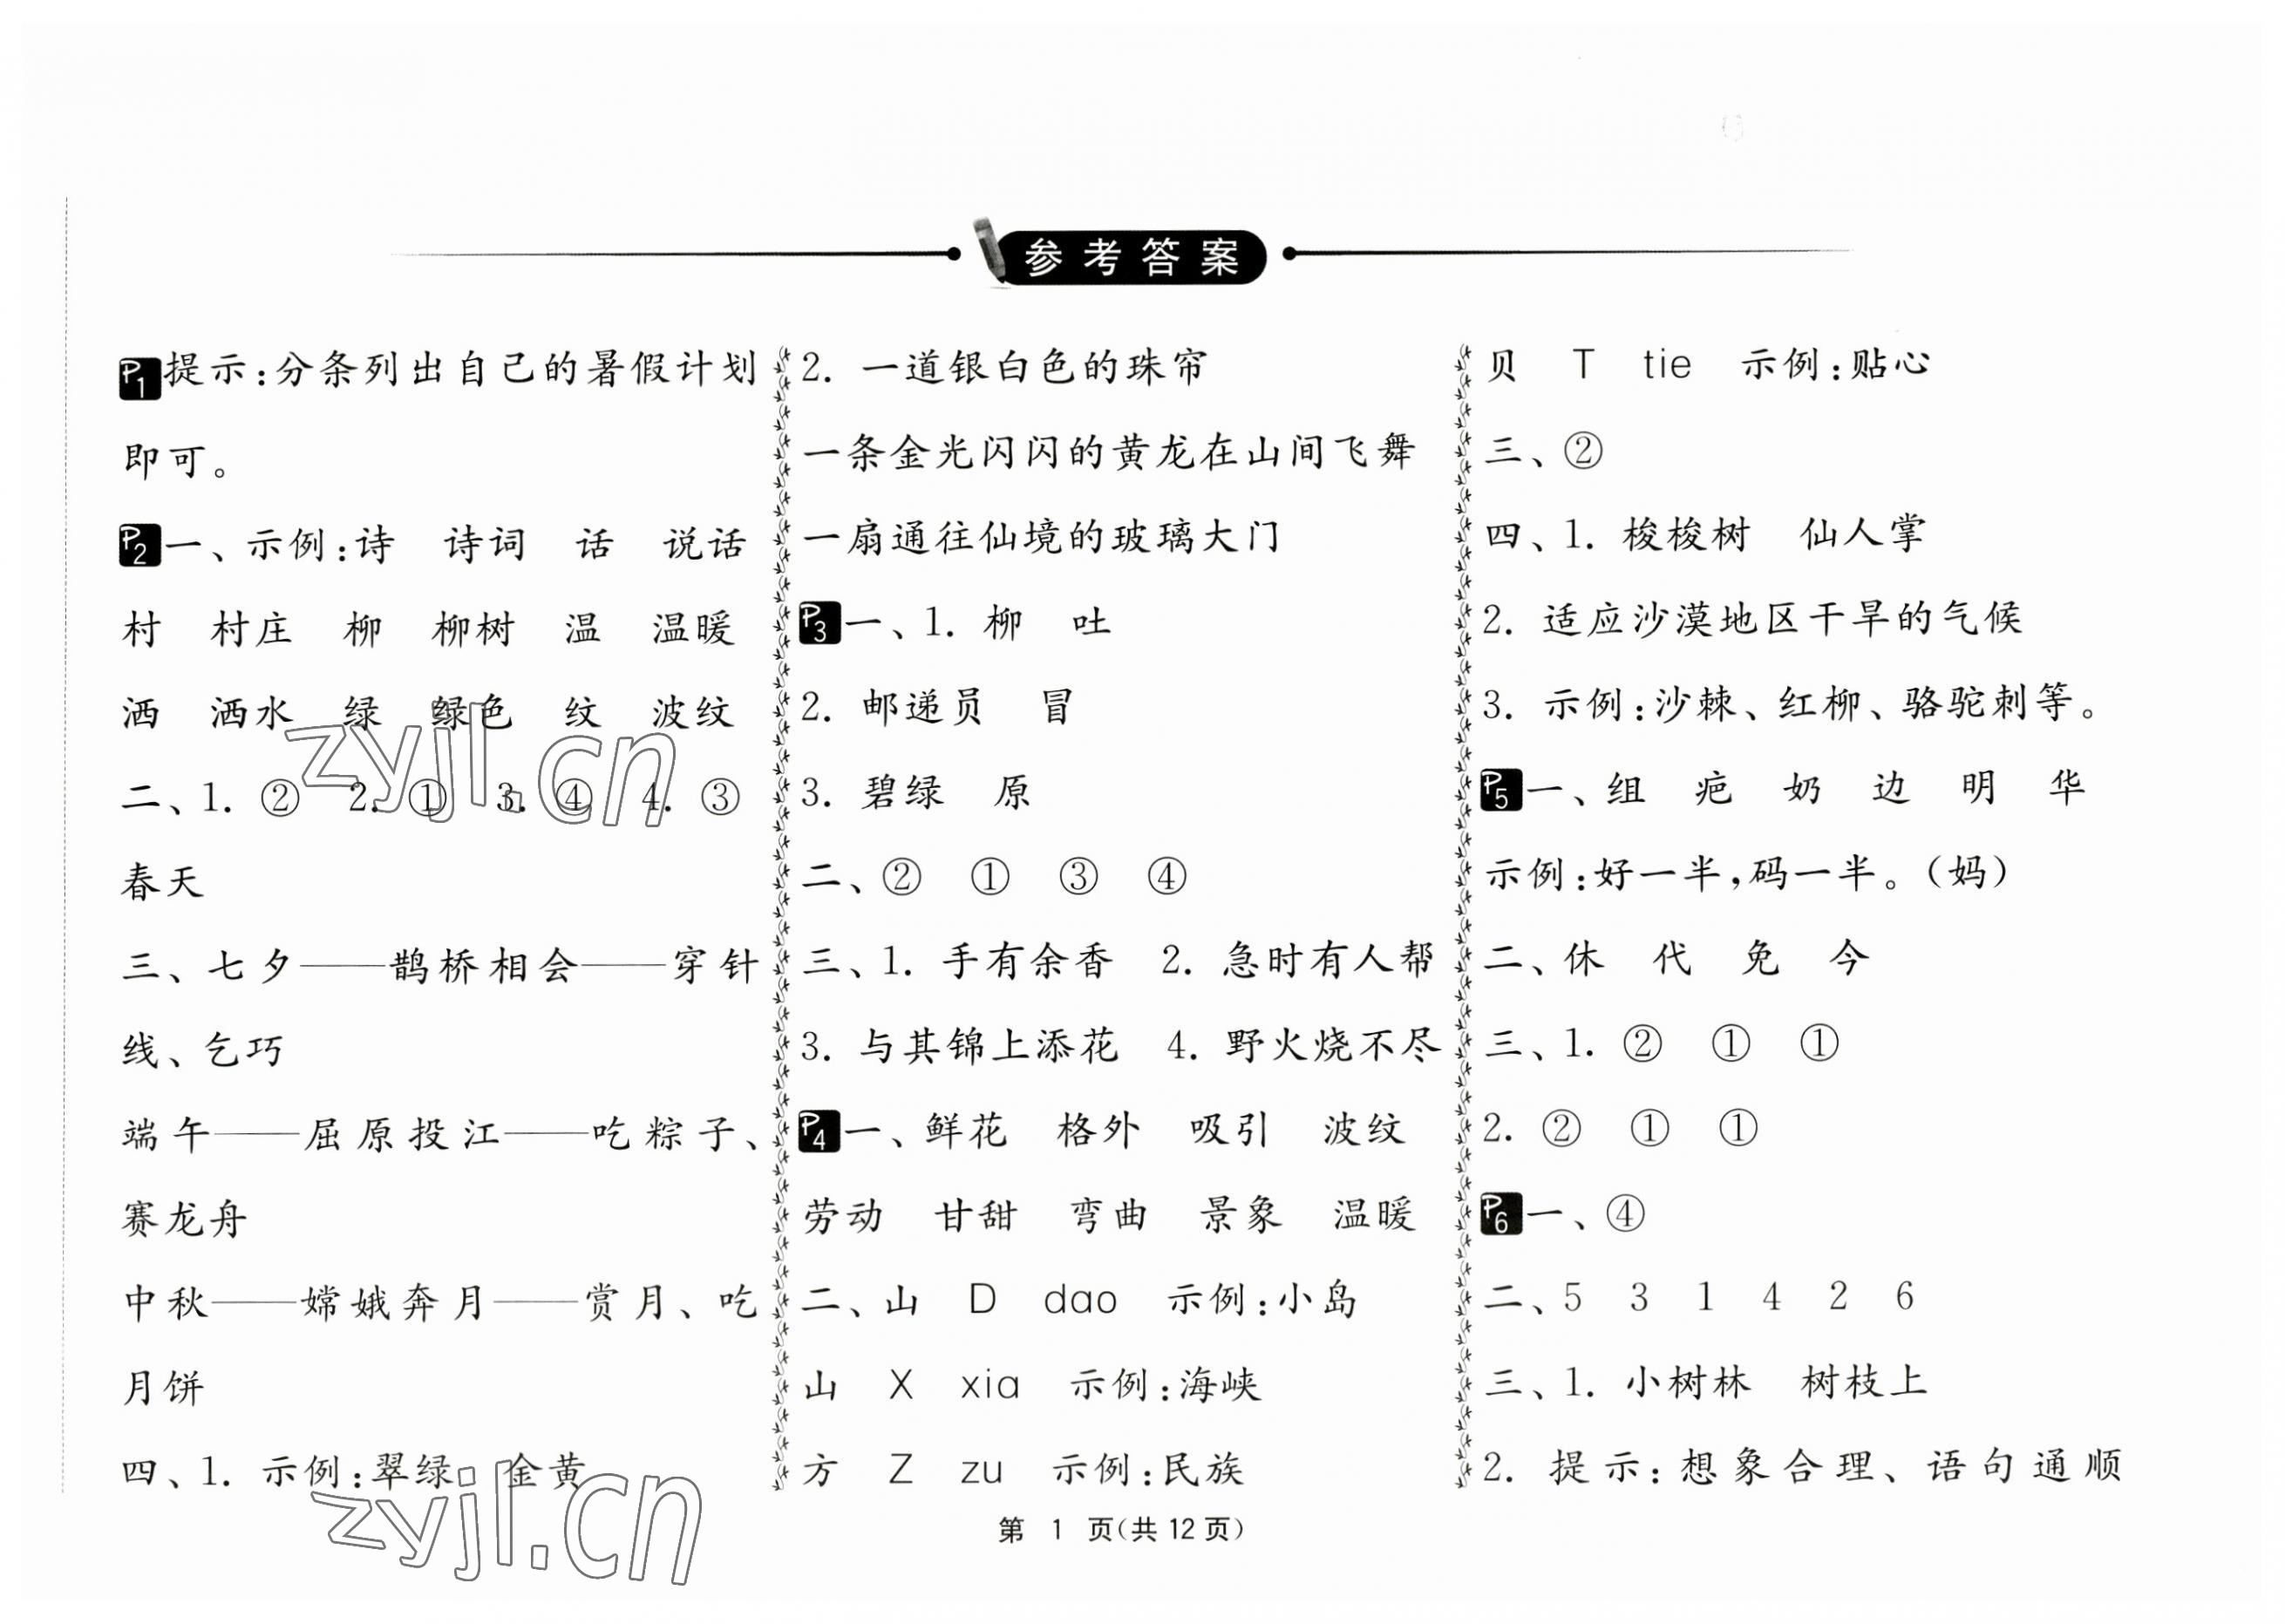 参考答案
P1 提示:分条列出自己的暑假计划
即可。
P2 一、示例:诗 诗词 话 说话
村 村庄 柳 柳树 温 温暖
洒 洒水 绿 绿色 纹 波纹
二、1. ② 2. ① 3. ④ 4. ③
春天
三、七夕——鹊桥相会——穿针
线、乞巧
端午——屈原投江——吃粽子、
赛龙舟
中秋——嫦娥奔月——赏月、吃
月饼
四、1. 示例:翠绿 金黄
2. 一道银白色的珠帘
一条金光闪闪的黄龙在山间飞舞
一扇通往仙境的玻璃大门
P3 一、1. 柳 吐
2. 邮递员 冒
3. 碧绿 原
二、② ① ③ ④
三、1. 手有余香 2. 急时有人帮
3. 与其锦上添花 4. 野火烧不尽
P4 一、鲜花 格外 吸引 波纹
劳动 甘甜 弯曲 景象 温暖
二、山 D dao 示例:小岛
山 X xia 示例:海峡
方 Z zu 示例:民族
贝 T tie 示例:贴心
三、②
四、1. 梭梭树 仙人掌
2. 适应沙漠地区干旱的气候
3. 示例:沙棘、红柳、骆驼刺等。
P5 一、组 疤 奶 边 明 华
示例:好一半,码一半。(妈)
二、休 代 免 今
三、1. ② ① ①
2. ② ① ①
P6 一、④
二、5 3 1 4 2 6
三、1. 小树林 树枝上
2. 提示:想象合理、语句通顺
第 1 页(共 12 页)
zyjl.cn
zyjl.cn